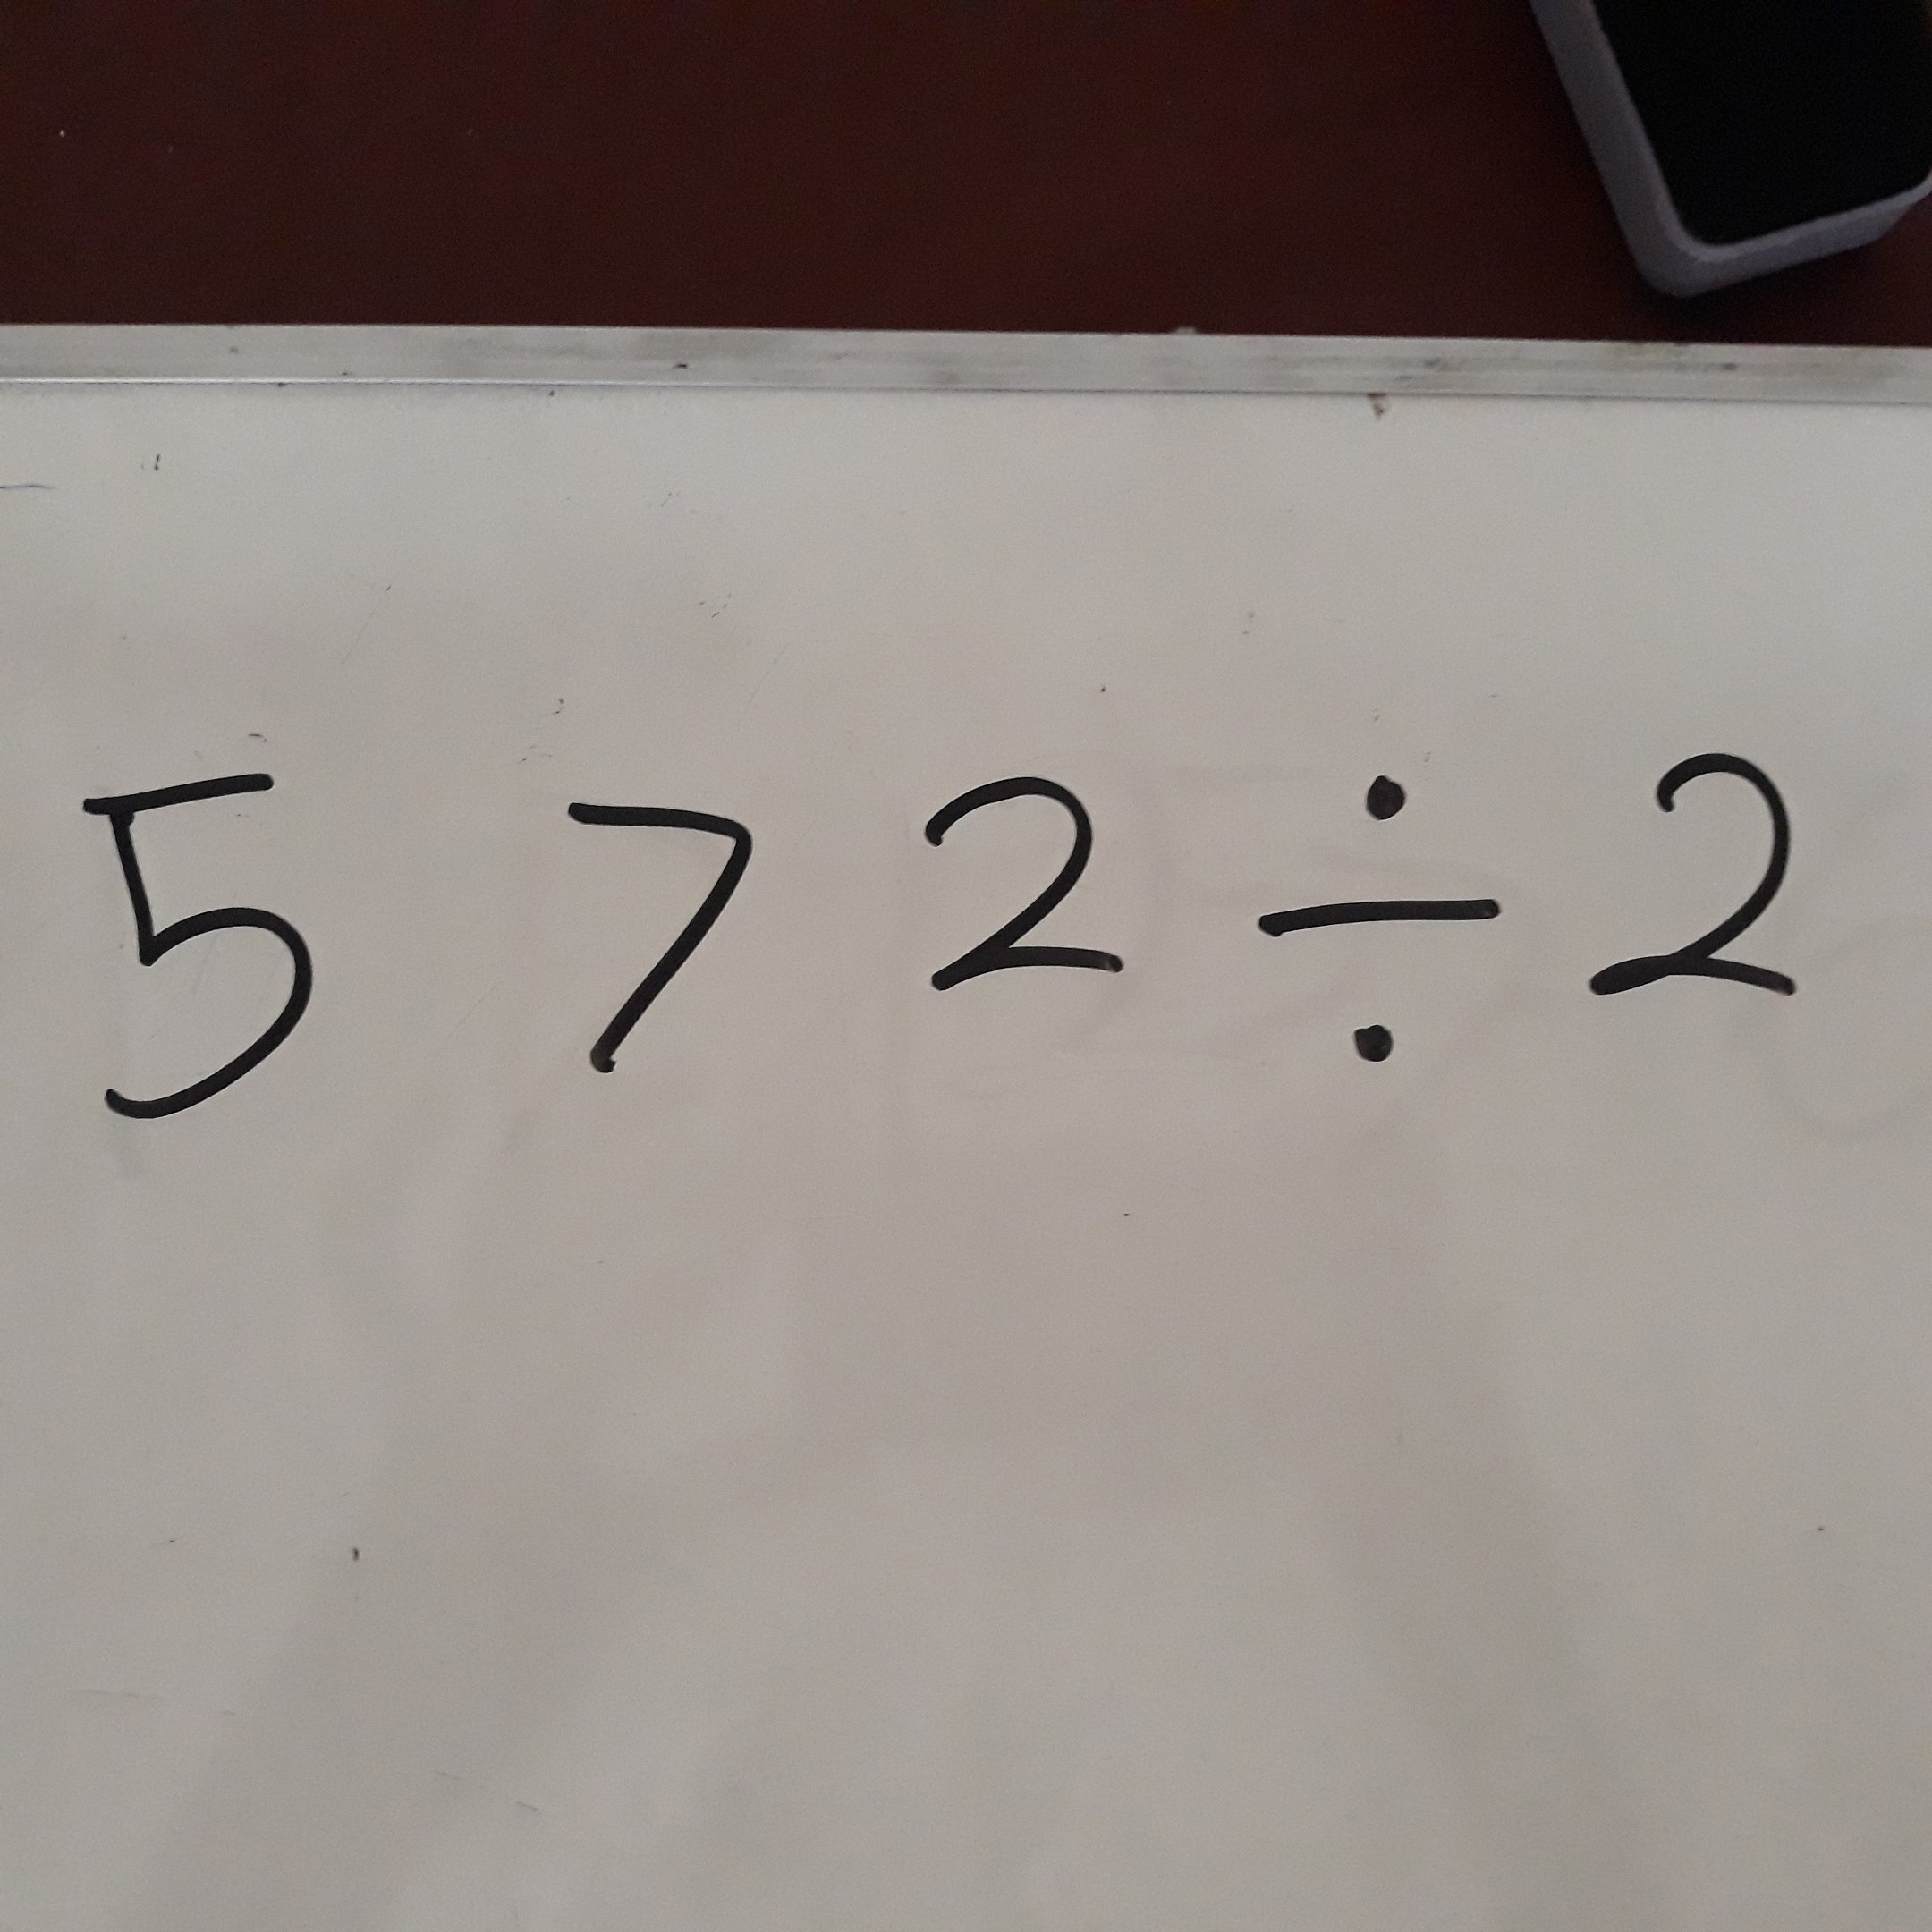 572÷2